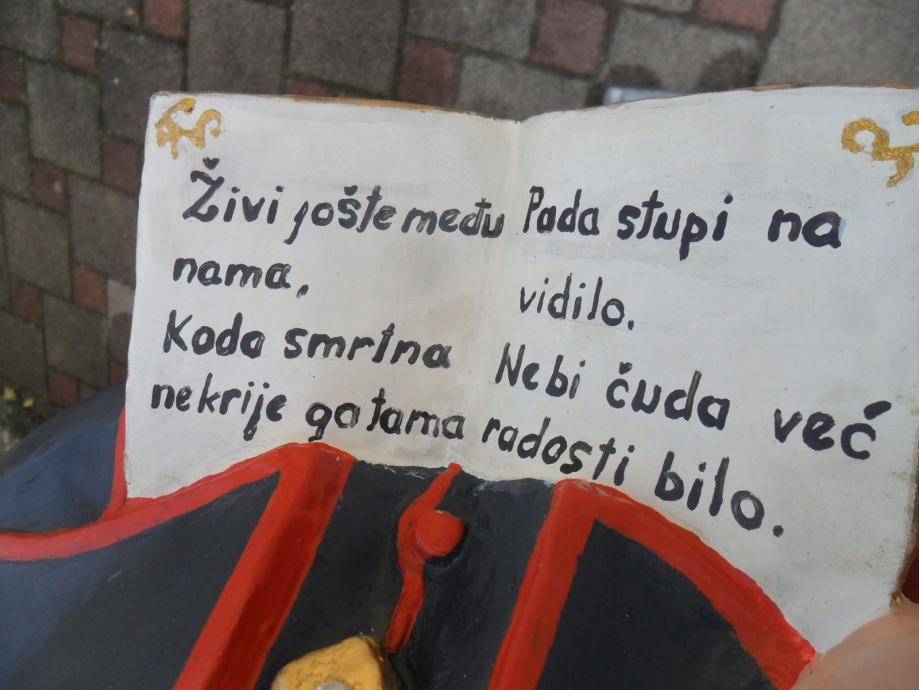 Živi jošte među
nama,
Koda smrtna
nekrije ga tama
Pada stupi na
vidilo.
Nebi čuda već
radosti bilo.